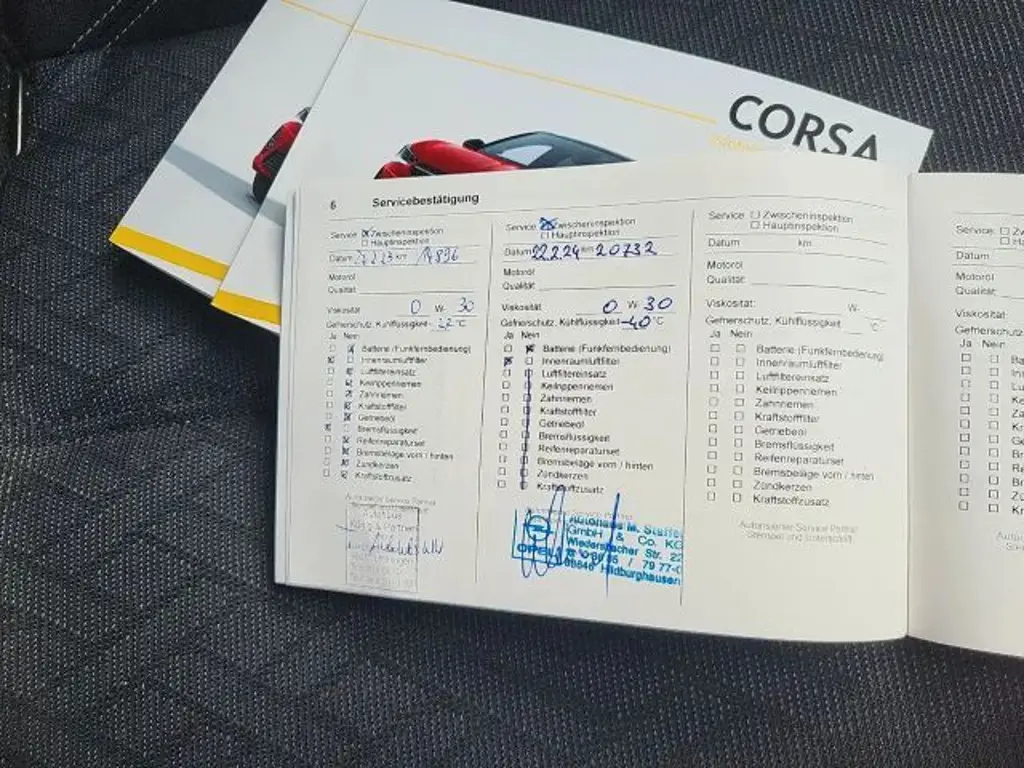 CORSA
6 Servicebestätigung
Service ☒ Zwischeninspektion
☐ Hauptinspektion
Datum km 14896
Motoröl
Qualität:
Viskosität 0 W- 30
Gefrierschutz, Kühlflüssigkeit °C
Ja Nein
Batterie (Funkfernbedienung)
Innenraumluftfilter
Luftfiltereinsatz
Keilrippenriemen
Zahnriemen
Kraftstofffilter
Getriebeöl
Bremsflüssigkeit
Reifenreparaturset
Bremsbeläge vorn / hinten
Zündkerzen
Kraftstoffzusatz
Autorisierter Service Partner
& Partner
Service ☒ Zwischeninspektion
☐ Hauptinspektion
Datum 22.2.24 km 20732
Motoröl
Qualität:
Viskosität: 0 W- 30
Gefrierschutz, Kühlflüssigkeit -40 °C
Ja Nein
Batterie (Funkfernbedienung)
Innenraumluftfilter
Luftfiltereinsatz
Keilrippenriemen
Zahnriemen
Kraftstofffilter
Getriebeöl
Bremsflüssigkeit
Reifenreparaturset
Bremsbeläge vorn / hinten
Zündkerzen
Kraftstoffzusatz
Autohaus M.
GmbH & Co. KG
Str. 22
OPEL
Hildburghausen
Service ☐ Zwischeninspektion
☐ Hauptinspektion
Datum km
Motoröl
Qualität:
Viskosität: W-
Gefrierschutz, Kühlflüssigkeit °C
Ja Nein
Batterie (Funkfernbedienung)
Innenraumluftfilter
Luftfiltereinsatz
Keilrippenriemen
Zahnriemen
Kraftstofffilter
Getriebeöl
Bremsflüssigkeit
Reifenreparaturset
Bremsbeläge vorn / hinten
Zündkerzen
Kraftstoffzusatz
Autorisierter Service Partner
Stempel und Unterschrift
Service: ☐
Datum
Motoröl
Qualität:
Viskosität:
Ja Nein